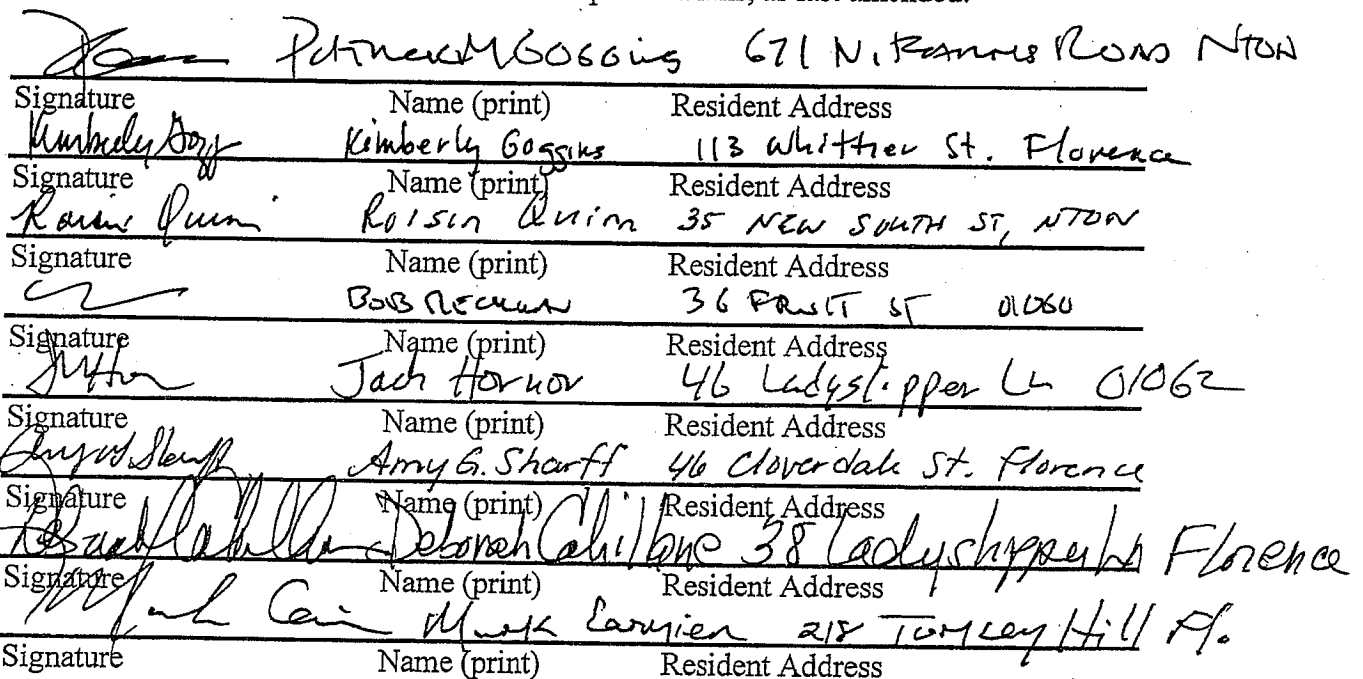 as last amended.
Patrick M Goggins 671 N. Farms Road NTON
Signature Name (print) Resident Address
Kimberly Goggins 113 Whittier St. Florence
Signature Name (print) Resident Address
Roisin Quinn Roisin Quinn 35 NEW SOUTH ST, NTON
Signature Name (print) Resident Address
BOB RECKMAN 36 FRUIT ST 01060
Signature Name (print) Resident Address
Jack Hornor 46 Ladyslipper Ln 01062
Signature Name (print) Resident Address
Amy G. Sharff 46 Cloverdale St. Florence
Signature Name (print) Resident Address
Deborah Cahillane 38 Ladyslipper Ln Florence
Signature Name (print) Resident Address
Mark 218 Hill Fl.
Signature Name (print) Resident Address